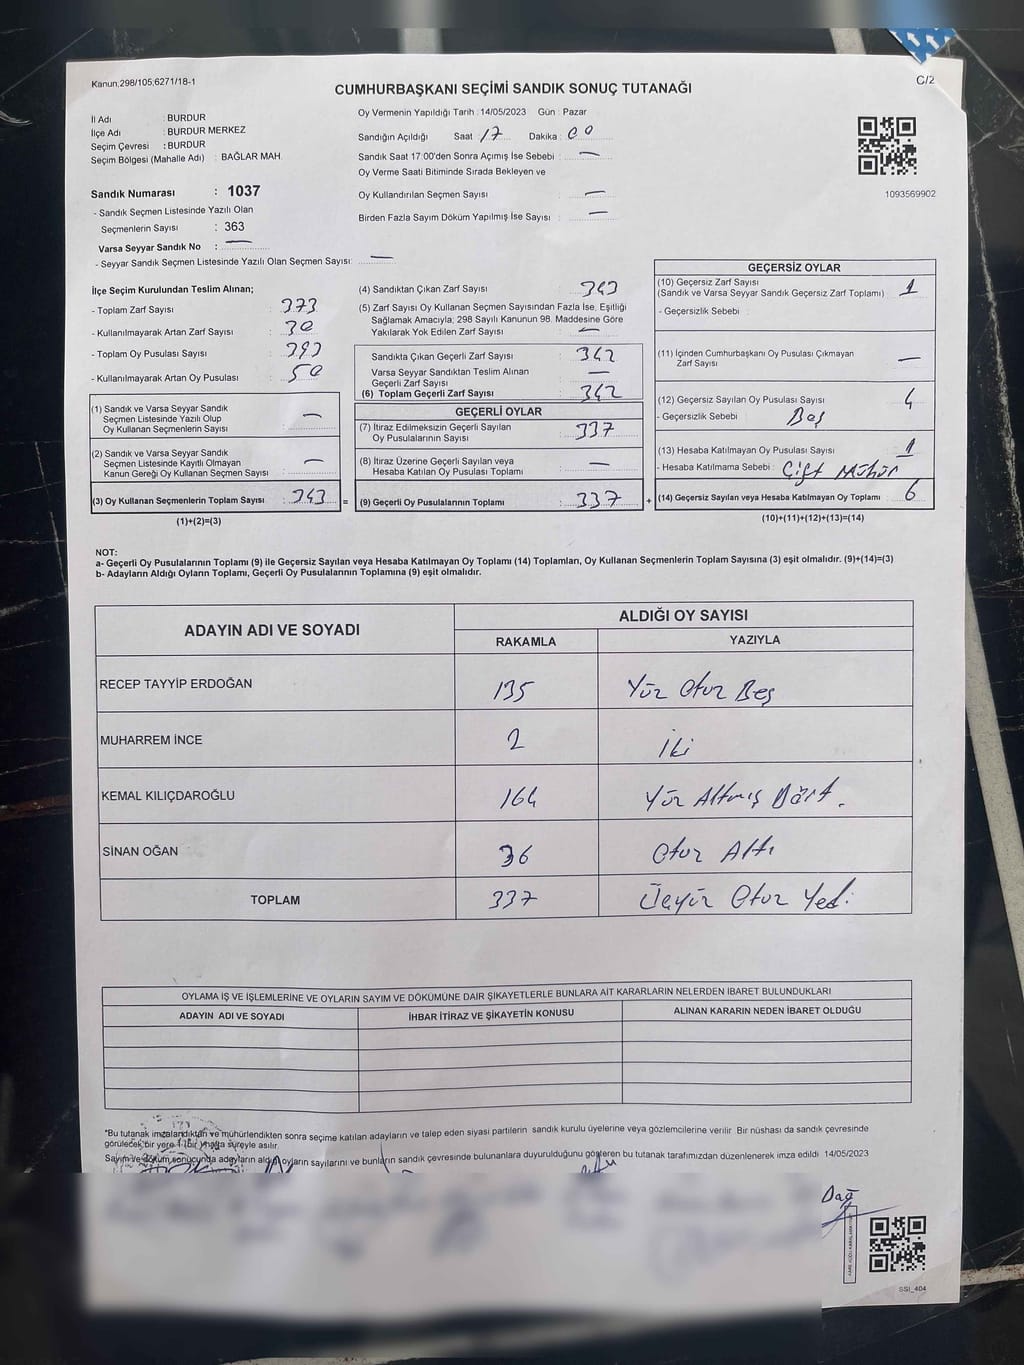 Kanun;298/105,6271/18-1
C/2
CUMHURBAŞKANI SEÇİMİ SANDIK SONUÇ TUTANAĞI
İl Adı : BURDUR
İlçe Adı : BURDUR MERKEZ
Seçim Çevresi : BURDUR
Seçim Bölgesi (Mahalle Adı) : BAĞLAR MAH.
Sandık Numarası : 1037
- Sandık Seçmen Listesinde Yazılı Olan
Seçmenlerin Sayısı : 363
Varsa Seyyar Sandık No : —
- Seyyar Sandık Seçmen Listesinde Yazılı Olan Seçmen Sayısı: —
Oy Vermenin Yapıldığı Tarih : 14/05/2023 Gün : Pazar
Sandığın Açıldığı Saat 17 Dakika : 00
Sandık Saat 17:00'den Sonra Açımış İse Sebebi : —
Oy Verme Saati Bitiminde Sırada Bekleyen ve
Oy Kullandırılan Seçmen Sayısı : —
Birden Fazla Sayım Döküm Yapılmış İse Sayısı : —
1093569902
İlçe Seçim Kurulundan Teslim Alınan;
- Toplam Zarf Sayısı : 373
- Kullanılmayarak Artan Zarf Sayısı : 30
- Toplam Oy Pusulası Sayısı : 393
- Kullanılmayarak Artan Oy Pusulası : 50
(1) Sandık ve Varsa Seyyar Sandık
Seçmen Listesinde Yazılı Olup
Oy Kullanan Seçmenlerin Sayısı : —
(2) Sandık ve Varsa Seyyar Sandık
Seçmen Listesinde Kayıtlı Olmayan
Kanun Gereği Oy Kullanan Seçmen Sayısı : —
(3) Oy Kullanan Seçmenlerin Toplam Sayısı : 343 =
(1)+(2)=(3)
(4) Sandıktan Çıkan Zarf Sayısı : 343
(5) Zarf Sayısı Oy Kullanan Seçmen Sayısından Fazla İse, Eşitliği
Sağlamak Amacıyla; 298 Sayılı Kanunun 98. Maddesine Göre
Yakılarak Yok Edilen Zarf Sayısı : —
Sandıkta Çıkan Geçerli Zarf Sayısı : 342
Varsa Seyyar Sandıktan Teslim Alınan
Geçerli Zarf Sayısı : —
(6) Toplam Geçerli Zarf Sayısı : 342
GEÇERLİ OYLAR
(7) İtiraz Edilmeksizin Geçerli Sayılan
Oy Pusulalarının Sayısı : 337
(8) İtiraz Üzerine Geçerli Sayılan veya
Hesaba Katılan Oy Pusulası Toplamı : —
(9) Geçerli Oy Pusulalarının Toplamı : 337 +
GEÇERSİZ OYLAR
(10) Geçersiz Zarf Sayısı
(Sandık ve Varsa Seyyar Sandık Geçersiz Zarf Toplamı) : 1
- Geçersizlik Sebebi :
(11) İçinden Cumhurbaşkanı Oy Pusulası Çıkmayan
Zarf Sayısı : —
(12) Geçersiz Sayılan Oy Pusulası Sayısı : 4
- Geçersizlik Sebebi : Boş
(13) Hesaba Katılmayan Oy Pusulası Sayısı : 1
- Hesaba Katılmama Sebebi : Çift Mühür
(14) Geçersiz Sayılan veya Hesaba Katılmayan Oy Toplamı : 6
(10)+(11)+(12)+(13)=(14)
NOT:
a- Geçerli Oy Pusulalarının Toplamı (9) ile Geçersiz Sayılan veya Hesaba Katılmayan Oy Toplamı (14) Toplamları, Oy Kullanan Seçmenlerin Toplam Sayısına (3) eşit olmalıdır. (9)+(14)=(3)
b- Adayların Aldığı Oyların Toplamı, Geçerli Oy Pusulalarının Toplamına (9) eşit olmalıdır.
ADAYIN ADI VE SOYADI ALDIĞI OY SAYISI
RAKAMLA YAZIYLA
RECEP TAYYİP ERDOĞAN 135 Yüz Otuz Beş
MUHARREM İNCE 2 İki
KEMAL KILIÇDAROĞLU 164 Yüz Altmış Dört.
SİNAN OĞAN 36 Otuz Altı
TOPLAM 337 Üçyüz Otuz Yedi
OYLAMA İŞ VE İŞLEMLERİNE VE OYLARIN SAYIM VE DÖKÜMÜNE DAİR ŞİKAYETLERLE BUNLARA AİT KARARLARIN NELERDEN İBARET BULUNDUKLARI
ADAYIN ADI VE SOYADI İHBAR İTİRAZ VE ŞİKAYETİN KONUSU ALINAN KARARIN NEDEN İBARET OLDUĞU
*Bu tutanak imzalandıktan ve mühürlendikten sonra seçime katılan adayların ve talep eden siyasi partilerin sandık kurulu üyelerine veya gözlemcilerine verilir. Bir nüshası da sandık çevresinde
görülecek bir yere 1 bir hafta süreyle asılır.
Sayım ve döküm sonucunda adayların aldığı oyların sayılarını ve bunların sandık çevresinde bulunanlara duyurulduğunu gösteren bu tutanak tarafımızdan düzenlenerek imza edildi 14/05/2023
Dağ
SSI_404